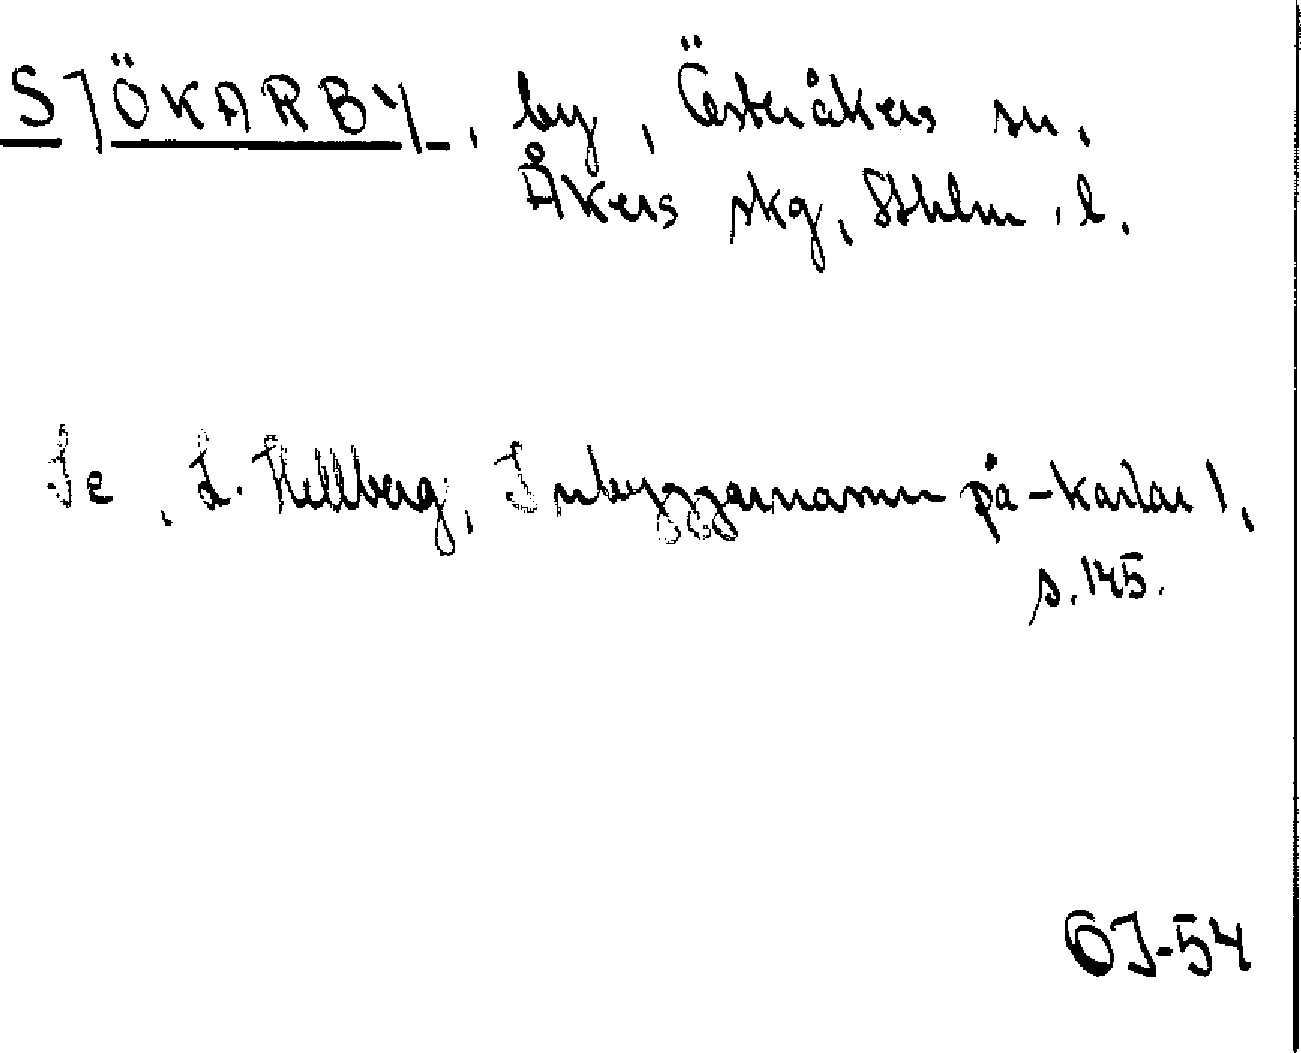 SJÖKARBY, by, Österåkers sn,
Åkers skg, Sthlm. l.
Se, L. Hellberg, Inbyggarnamn på -karlar 1,
s. 145.
OJ-54